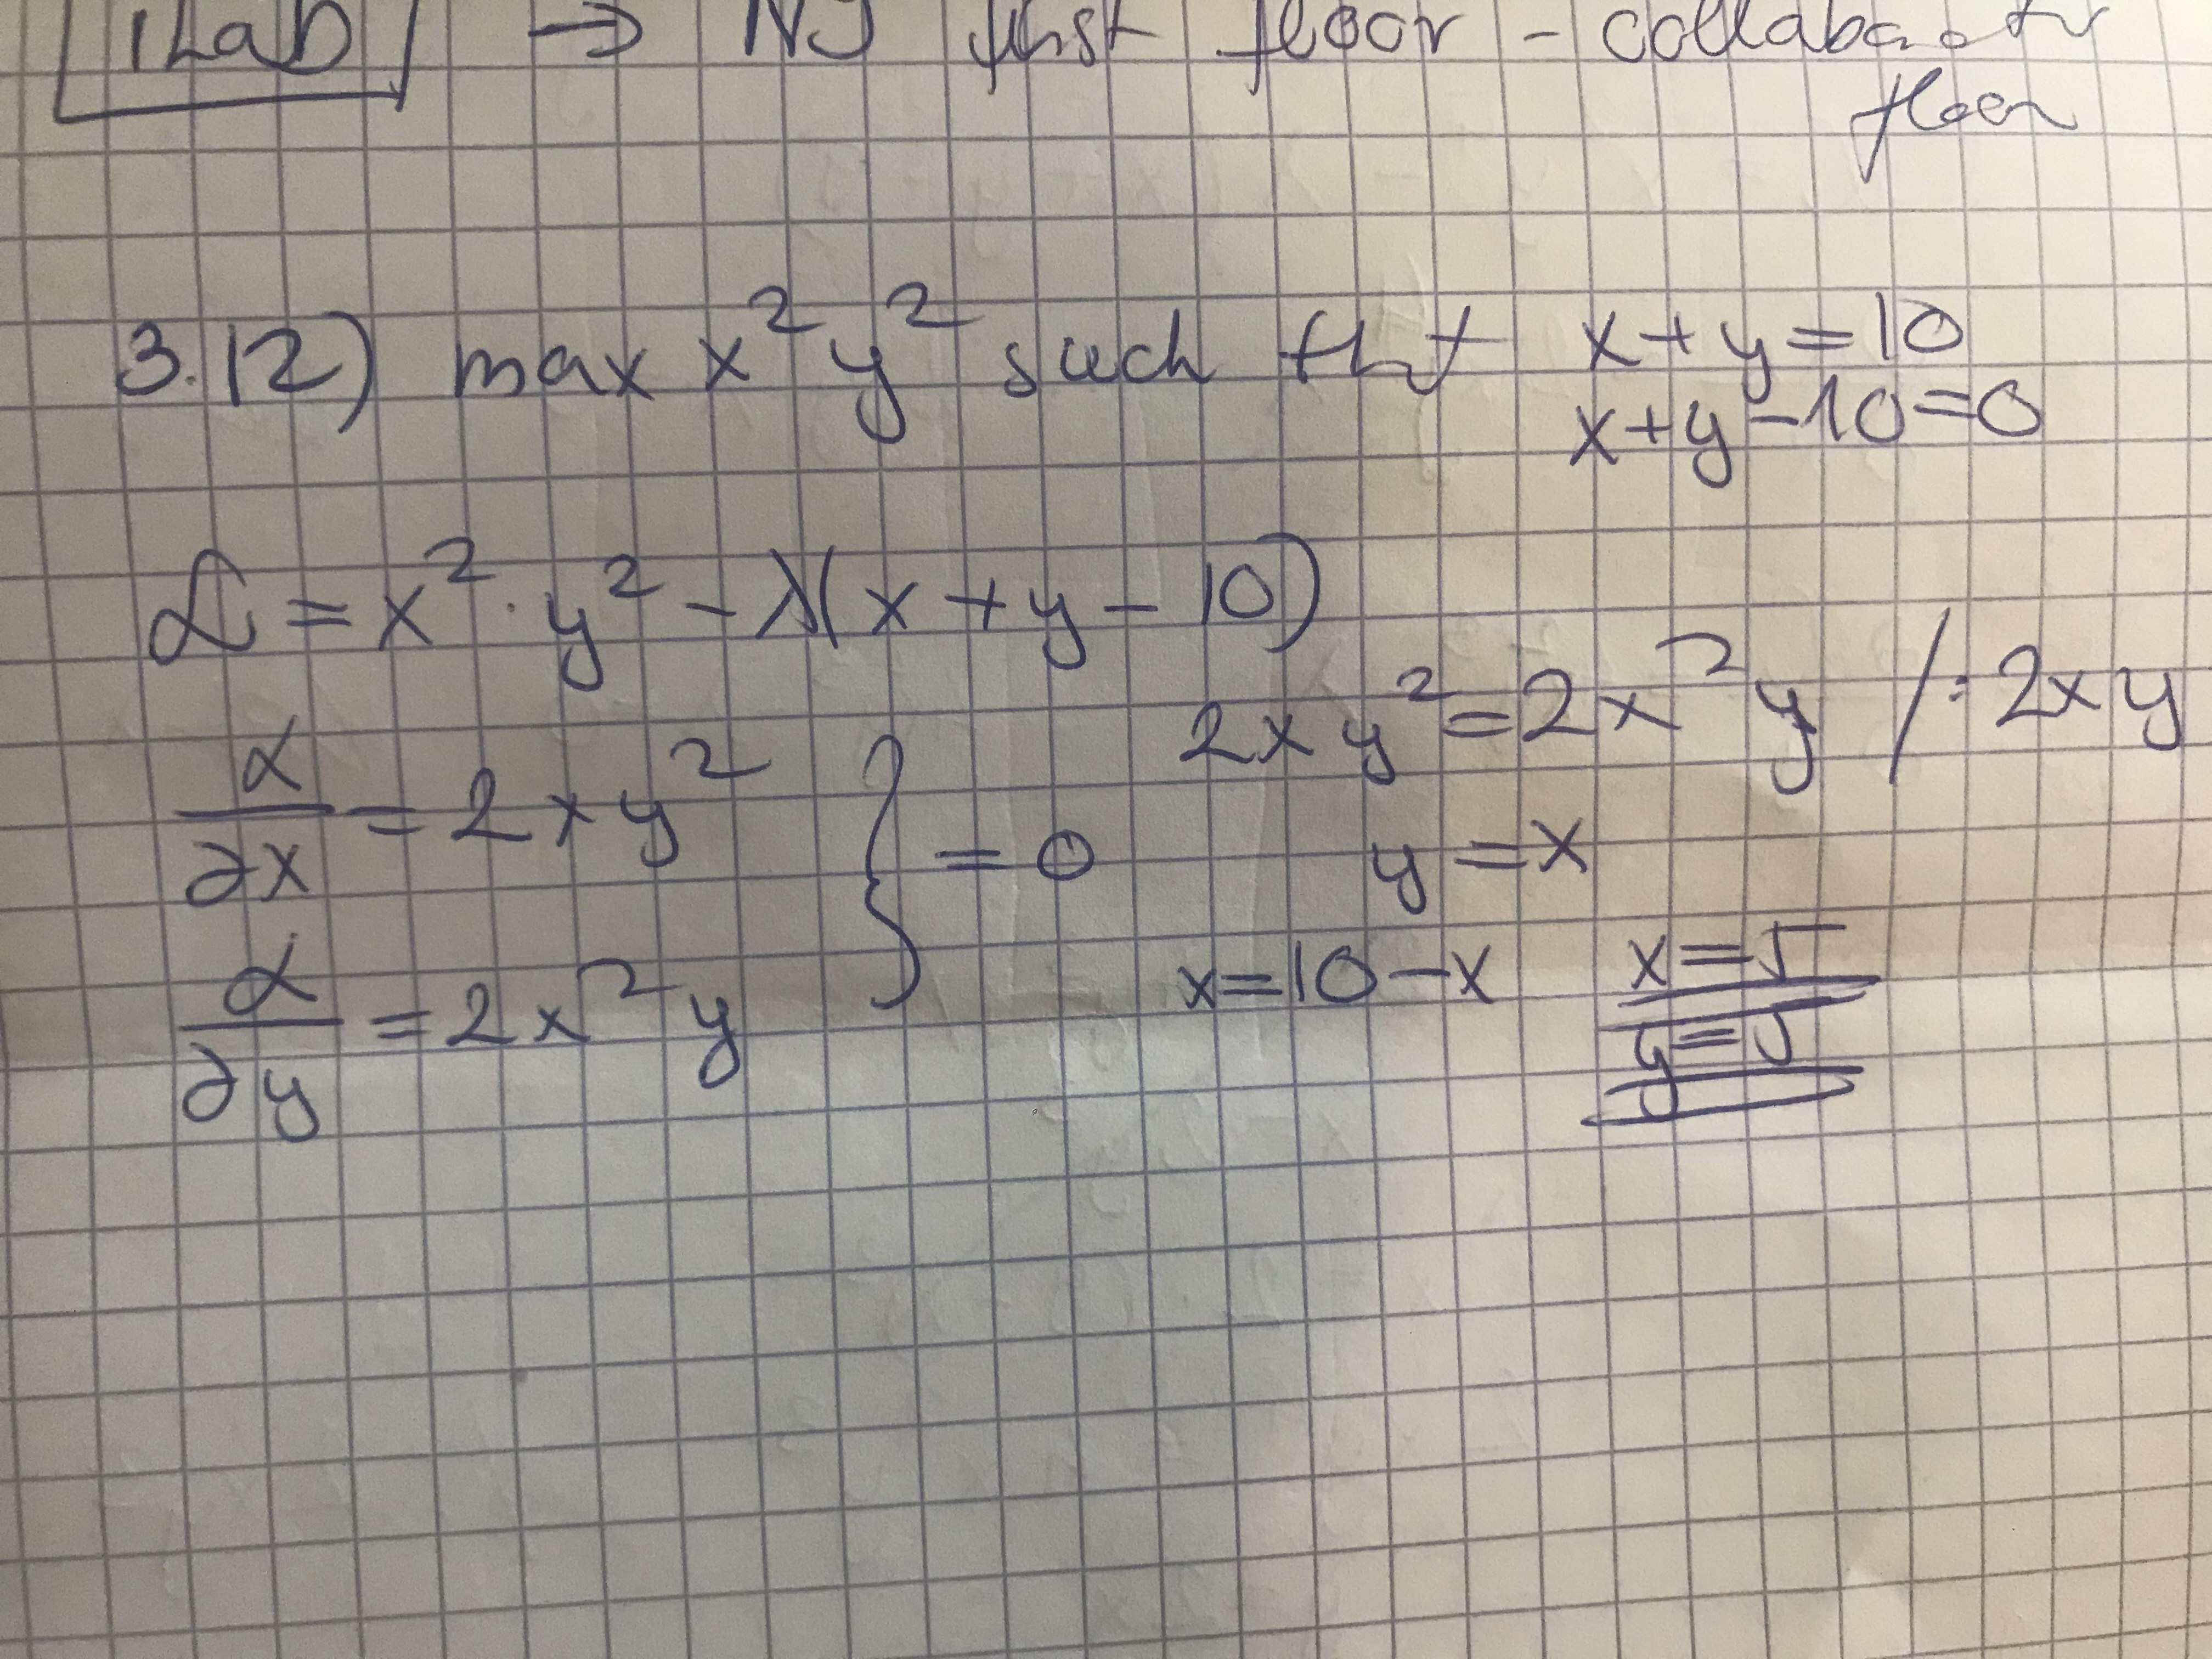 iLab → NJ first floor - collaborativ
floor
3.12) max x²y² such tht x+y=10
x+y-10=0
ℒ = x²·y² - λ(x+y-10)
∂/∂x = 2xy²
∂/∂y = 2x²y
} = 0
2xy²=2x²y /:2xy
y=x
x=10-x
x=5
y=5